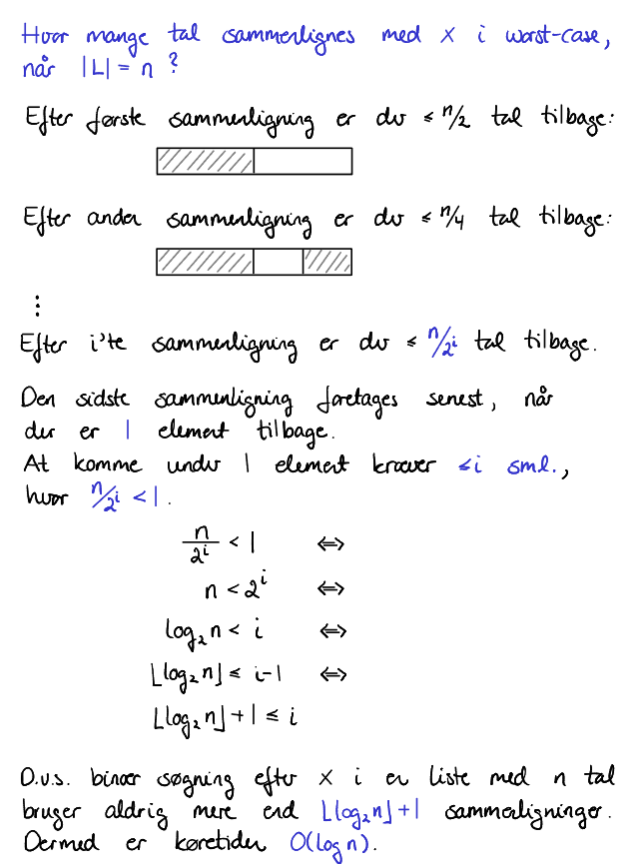 Hvor mange tal sammenlignes med x i worst-case,
når |L| = n ?
Efter første sammenligning er der ≤ n/2 tal tilbage:
Efter anden sammenligning er der ≤ n/4 tal tilbage:
⋮
Efter i'te sammenligning er der ≤ n/2^i tal tilbage.
Den sidste sammenligning foretages senest, når
der er 1 element tilbage.
At komme under 1 element kræver ≤ i sml.,
hvor n/2^i < 1.
n/2^i < 1 ⇔
n < 2^i ⇔
log₂n < i ⇔
⌊log₂n⌋ ≤ i-1 ⇔
⌊log₂n⌋ + 1 ≤ i
D.v.s. binær søgning efter x i en liste med n tal
bruger aldrig mere end ⌊log₂n⌋+1 sammenligninger.
Dermed er køretiden O(log n).